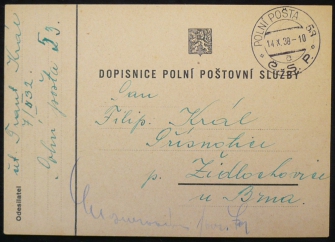 POLNÍ POŠTA 53
14.X.38-10
b
Č.S.P.
DOPISNICE POLNÍ POŠTOVNÍ SLUŽBY
Pan
Filip Král
Přísnotice
p. Židlochovice
u Brna
Odesílatel
Král
7/632
Polní pošta 53.